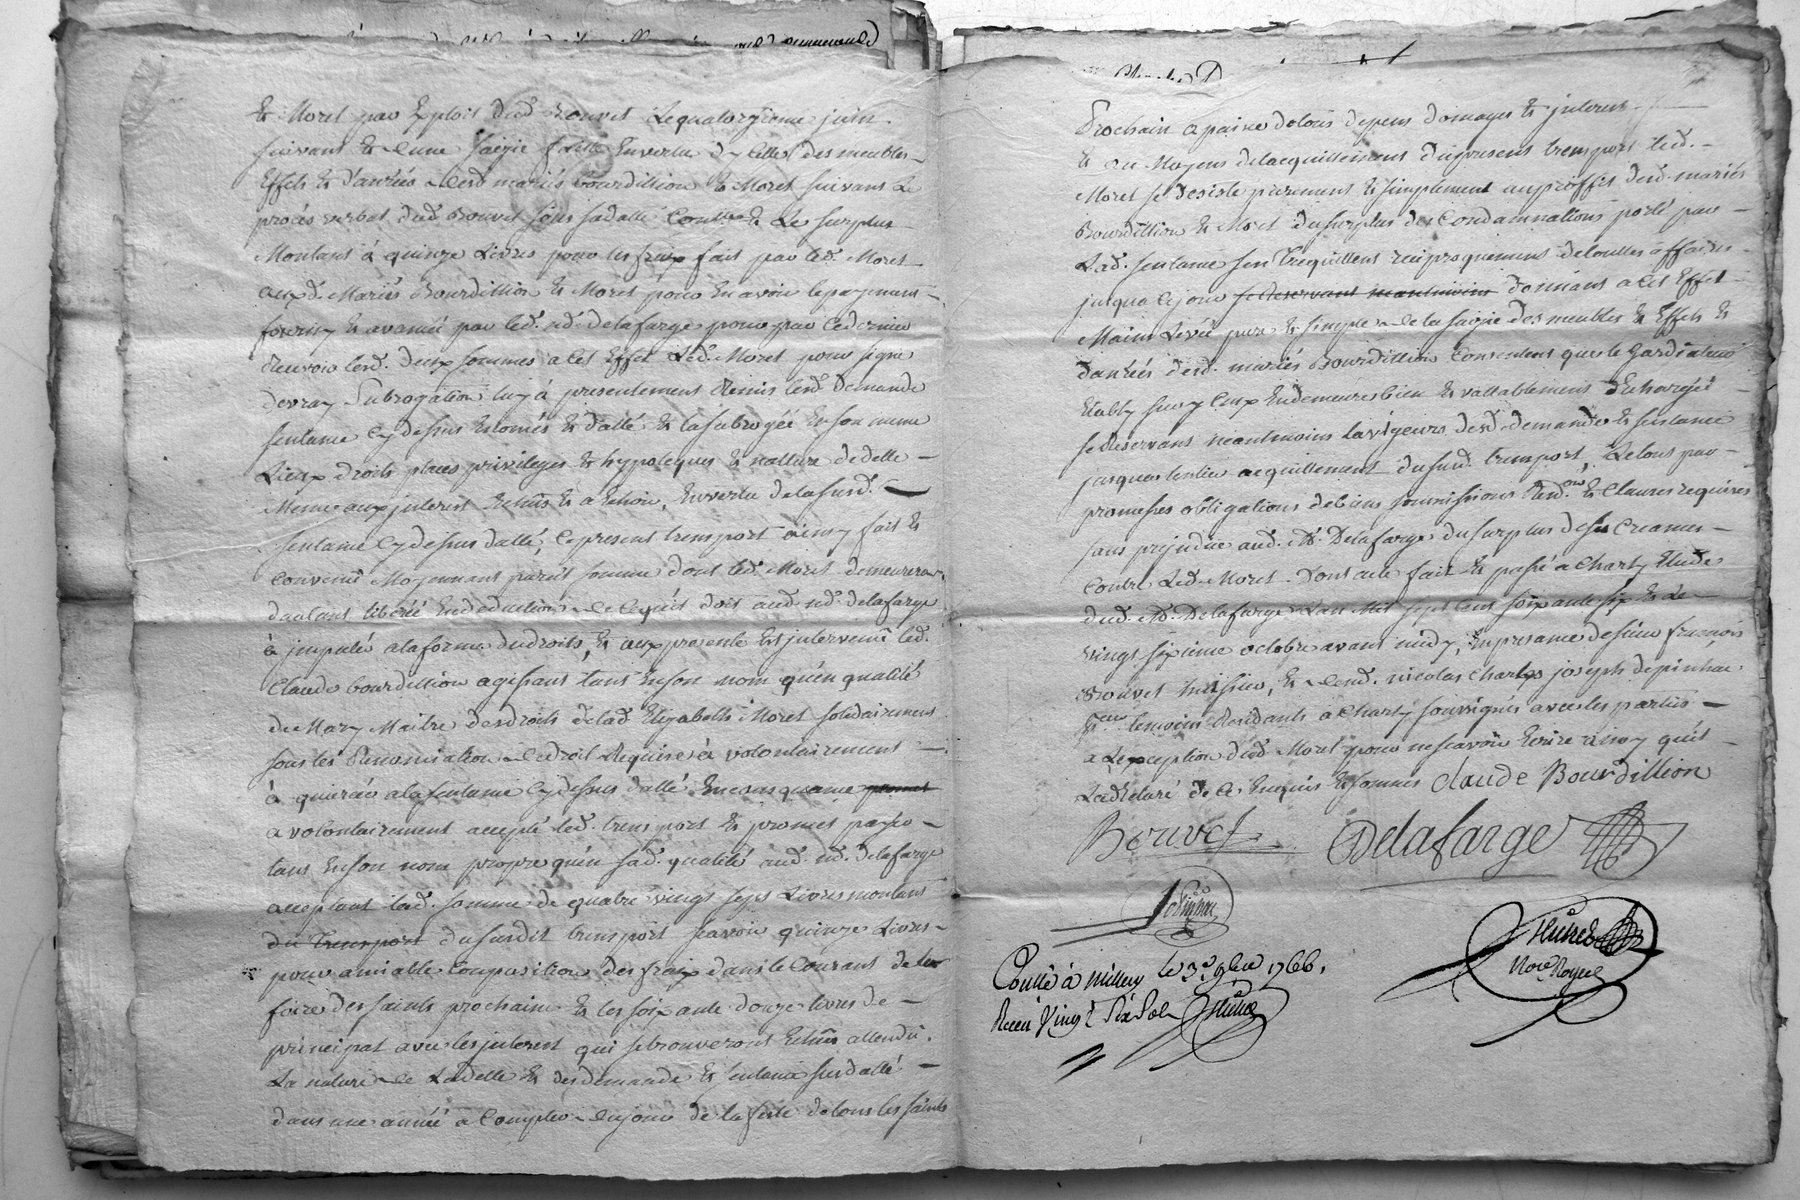 Et Moret par Exploit dud. Bouvet Lequatorzieme juin
suivant Et dune saizie faitte Envertu dycelle des meubles
Effets Et danrées desd mariés bourdillion Et Moret suivant Le
procès verbal dud. Bouvet sous sadatte Et Le surplus
Montant à quinze Livres pour les frais fait par led. Moret
auxd. Mariés Bourdillion Et Moret pour En avoir lepayement
fourny Et avancé par led. delafarge pour par Cedernier
lesd. deux sommes a Cet Effet Led. Moret pour signe
devray Subrogation luy à presentement Remis lesd demande
sentance Cydessus Et datté Et lasubrogée En son
Lieux droits places privileges Et hypoteques Et natture dedette
Meme aux interest Echûs Et a Echoir, Envertu delasusd.
sentance Cydessus datté, Cepresent transport ainsy fait Et
Convenû Moyennant pareil somme dont led. Moret demeurera
dautant liberé Endeduction de Cequil doit aud. delafarge
à jmputér alaforme dudroits, Et aux presente Est jntervenû led.
Claude bourdillion agissant tant Enson nom qu'en qualité
de Mary Maitre desdroits delad. Elizabeth Moret solidairement
sous les Renonsiation dedroit Requise à volontairement
à quiescé alasentance Cydessus datté Enconsequance
avolontairement accepté led. transport Et promet payer
tant Enson nom propre quén sad. qualité aud. delafarge
acceptant lad. somme de quatre vingt sept Livres montant
du transport dusurdit transport scavoir quinze Livres
pour amiable Composition des frais dans le Courant dela
foire des saints prochaine Et les soixante douze livres de
principal avec les jnterest qui setrouveront Echûs attendû
La nature de Ladette Et des demande Et sentance susdatté
dans une année a Compter dujour de la feste detous les saints
Prochain apaine detous depens domages Et jnterest
Et au Moyens delacquittement dupresent transport led.
Moret se desiste purement Et simplement auproffit desd. mariés
Bourdillion Et Moret dusurplus des Condamnations porté par
Lad. sentance sen trequittent reciproquement detouttes affaires
jusqua Cejour se Reservant neantmoins donnant a Cet Effet
Main Levée pure Et simple dela saizie des meubles Et Effets Et
danrées desd. mariés Bourdillion Consentant que le Gardiateur
Etably sur y Ceux Endemeure bien Et vallablement déchargé
seReservant néantmoins lavigeurs desd. demandes Et sentance
jusques Lentier acquittement dususd. transport, Letout par
promesses obligations debiens soumissions Et Clauses requises
sans prejudice aud. Delafarge dusurplus deses Creances
Contre Led. Moret. Dont acte fait Et passé à Charly Etude
dud. Delafarge L'an Mil sept Cent soixante six Et Le
vingt sixieme octobre avant midy, En presance desieur francois
Bouvet huissier, Et dud. nicolas Charles joseph depinhac
temoins Residants à Charly soussignés avec les parties
a Lexception dud. Moret pour nescavoir Ecrire ainsy quil
Ladéclaré de Ce Enquis Et sommés Claude Bourdillion
Bouvet Delafarge
Depinhac
Not. Royal
Conllé à millery le 3e 9bre 1766.
Receu Vingt Six Sols